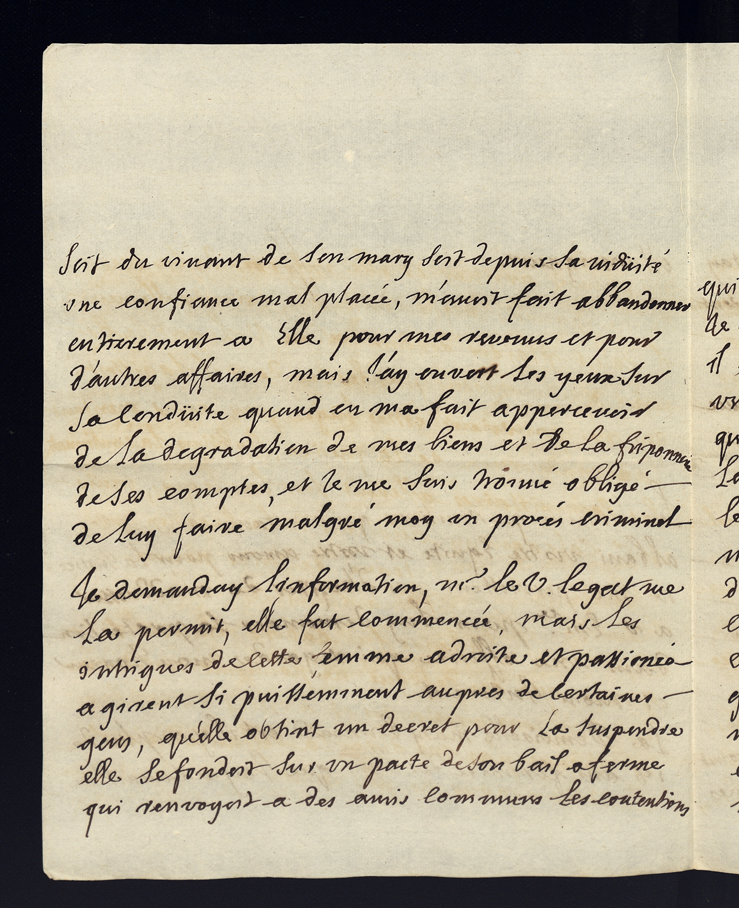 soit du vivant de son mary soit depuis sa viduité
une confiance mal placée, m'avoit fait abbandonner
entierement a Elle pour mes revenus et pour
d'autres affaires, mais J'ay ouvert les yeux sur
sa conduite quand on m'a fait appercevoir
de la degradation de mes biens et de la friponnerie
de ses comptes, et Je me suis trouvé obligé
de luy faire malgré moy un procés criminel
Je demanday l'information, m.r le V. legat me
la permit, elle fut commencée, mais les
intrigues de cette femme adroite et passionée
agirent si puissémment aupres de certaines
gens, qu'elle obtint un decret pour la suspendre
elle se fondoit sur un pacte de son bail a ferme
qui renvoyoit a des amis communs les contentions
qui
de
il
la
le